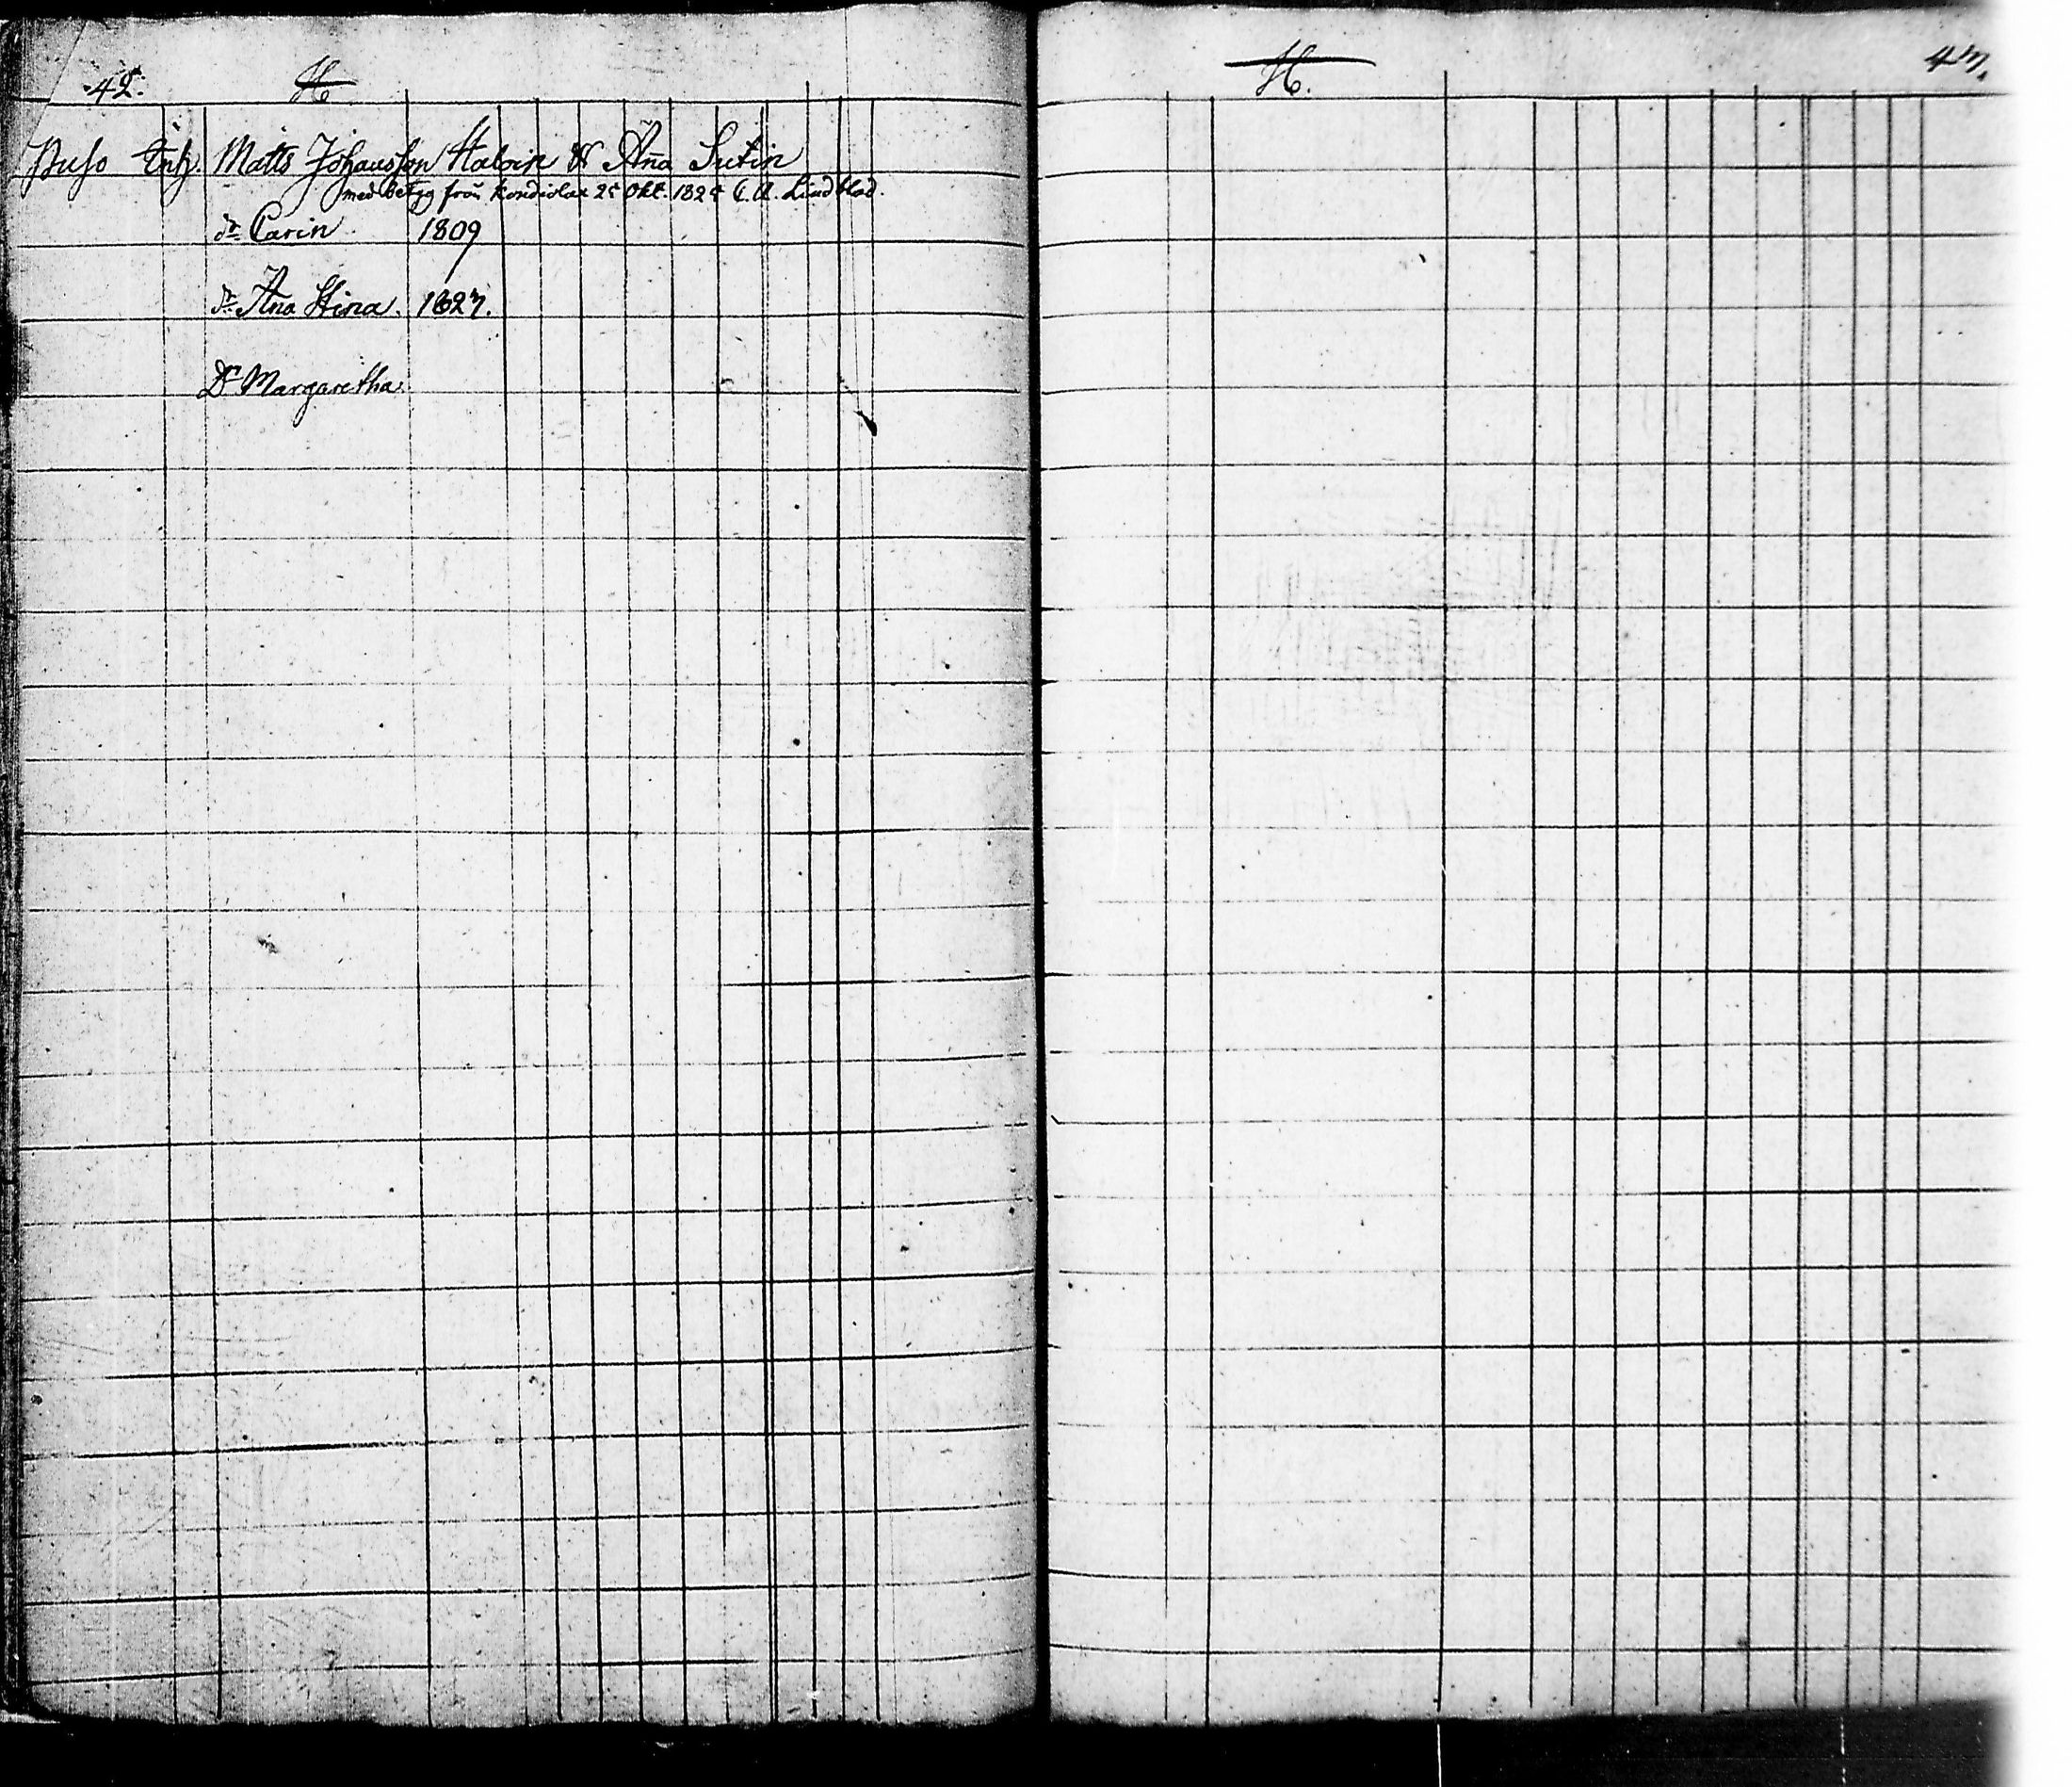 42. H
Puso Enk. Matts Johansson Haloin H Aña Sutin
med Betyg från Kondiolax 25 Okt. 1824 C. A. Lindblad.
dr Carin 1809
dr Ana Stina. 1827.
Dr Margaretha.
H. 43.